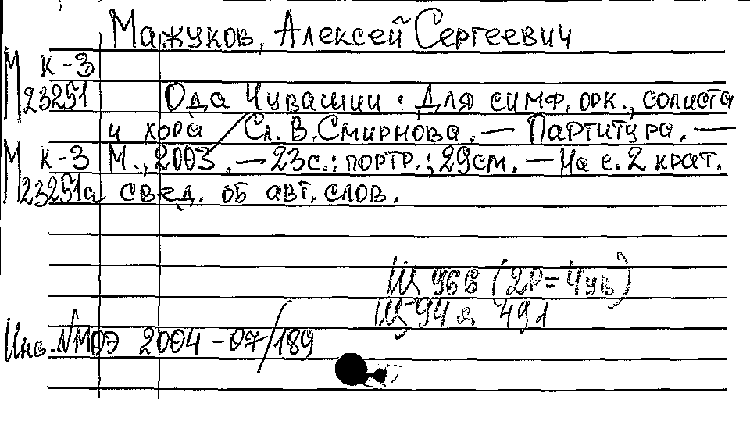 Мажуков, Алексей Сергеевич
М к-3
23251 Ода Чувашии. Для симф. орк., солиста
и хора / Сл. В. Смирнова. — Партитура. —
М к-3 М., 2003. — 23с.: портр.; 29см. — На с. 2 крат.
23251а свед. об авт. слов.
Щ 96в (2Р=Чув)
Щ 94я 491
Инв. №МОЭ 2004-07/189